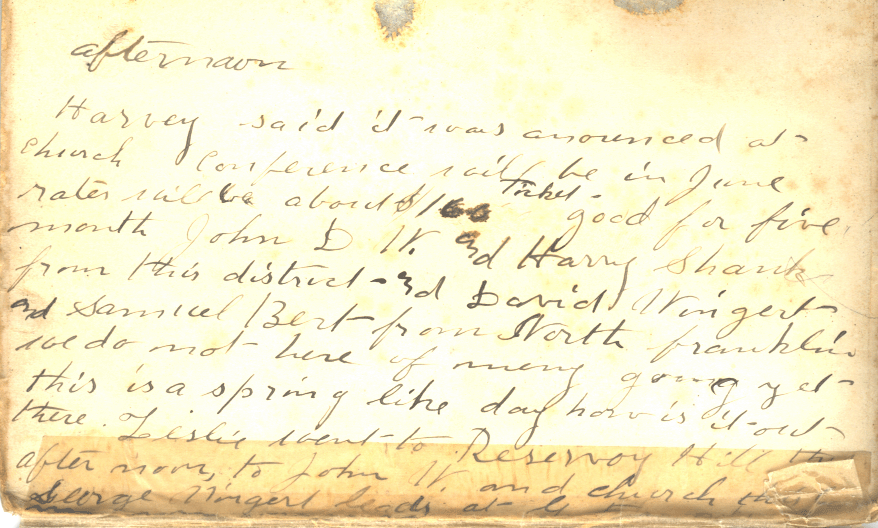 afternaon
Harvey said it was anounced at
church Conference will be in June
rates will be about $100 Ticket good for five
month John D W. and Harry Shank
from this district and David Wingert
and Samuel Bert from North franklin
we do not here of meny going yet
this is a spring like day how is it out
there. Leslie went to Reservoy Hill th
after noon, to John W. and church this
George Wingert leads at